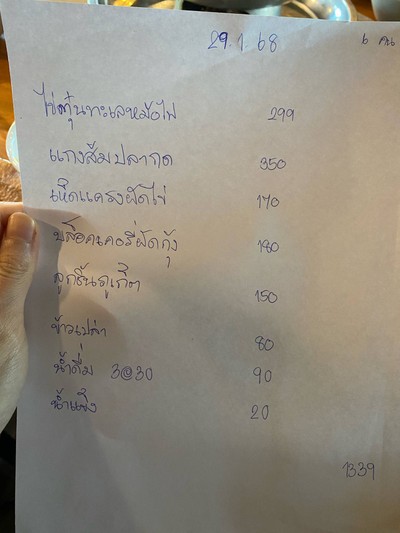 29.1.68 6 คน
ไข่ตุ๋นทะเลหม้อไฟ 299
แกงส้มปลากด 350
เห็ดแครงผัดไข่ 170
บล็อคเคอรี่ผัดกุ้ง 180
ลูกชิ้นภูเก็ต 150
ข้าวเปล่า 80
น้ำดื่ม 3@30 90
น้ำแข็ง 20
1339